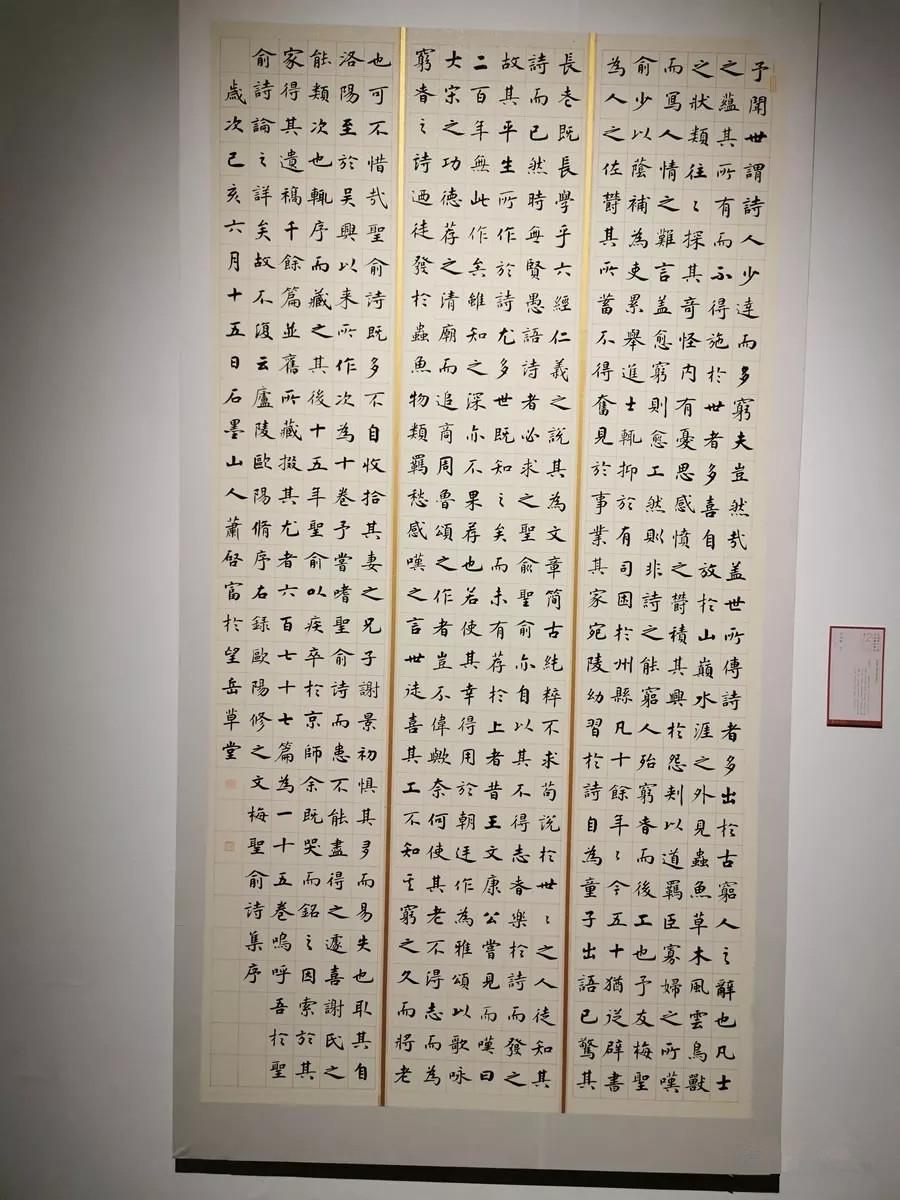 予聞世謂詩人少達而多窮夫豈然哉蓋世所傳詩者多出於古窮人之辭也凡士
之蘊其所有而不得施於世者多喜自放於山巔水涯之外見蟲魚草木風雲鳥獸
之狀類往〻探其奇怪內有憂思感憤之鬱積其興於怨刺以道羈臣寡婦之所嘆
而寫人情之難言蓋愈窮則愈工然則非詩之能窮人殆窮者而後工也予友梅聖
俞少以蔭補為吏累舉進士輒抑於有司困於州縣凡十餘年〻今五十猶從辟書
為人之佐鬱其所蓄不得奮見於事業其家宛陵幼習於詩自為童子出語已驚其
長老既長學乎六經仁義之說其為文章簡古純粹不求苟說於世〻之人徒知其
詩而已然時無賢愚語詩者必求之聖俞聖俞亦自以其不得志者樂於詩而發之
故其平生所作於詩尤多世既知之矣而未有荐於上者昔王文康公嘗見而嘆曰
二百年無此作矣雖知之深亦不果荐也若使其幸得用於朝廷作為雅頌以歌咏
大宋之功德荐之清廟而追商周魯頌之作者豈不偉歟奈何使其老不得志而為
窮者之詩迺徒發於蟲魚物類羈愁感嘆之言世徒喜其工不知其窮之久而將老
也可不惜哉聖俞詩既多不自收拾其妻之兄子謝景初懼其多而易失也取其自
洛陽至於吳興以來所作次為十卷予嘗嗜聖俞詩而患不能盡得之遽喜謝氏之
能類次也輒序而藏之其後十五年聖俞以疾卒於京師余既哭而銘之因索於其
家得其遺稿千餘篇並舊所藏掇其尤者六百七十七篇為一十五卷嗚呼吾於聖
俞詩論之詳矣故不復云廬陵歐陽脩序右錄歐陽修之文梅聖俞詩集序
歲次己亥六月十五日石墨山人蕭啓富於望岳草堂